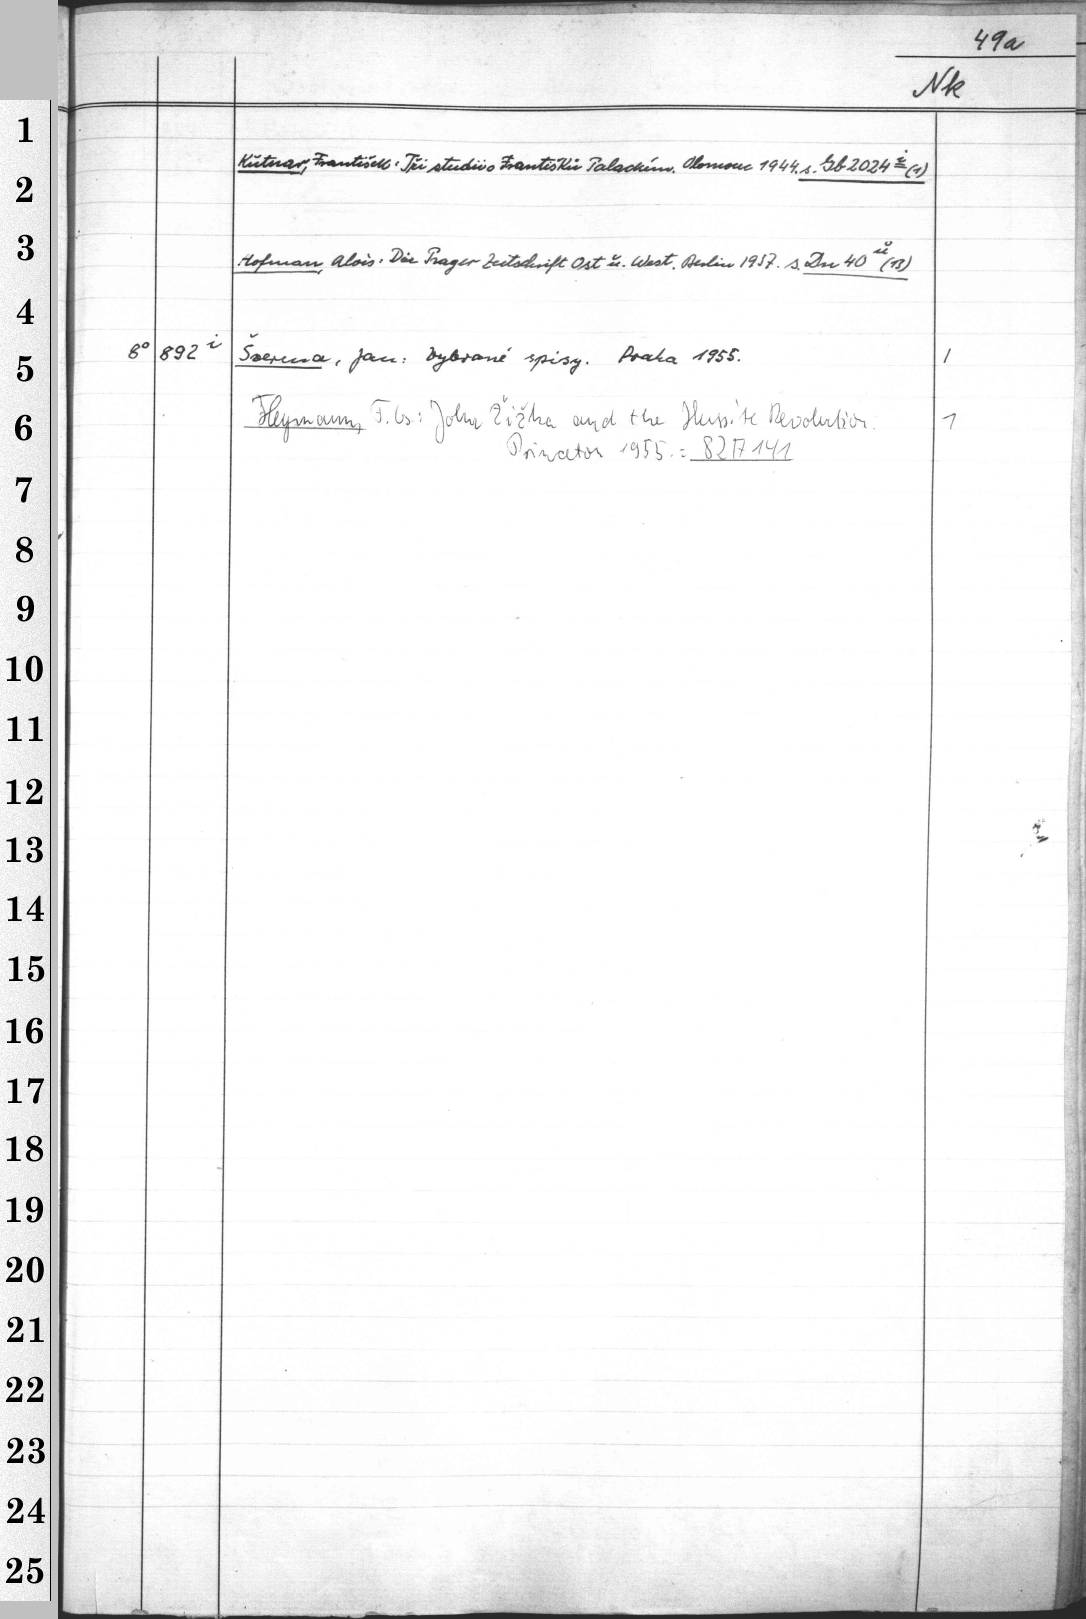 49a
Nk
1
Kutnar, František: Tři studie o Františku Palackém. Olomouc 1944. s. Gb 2024 (1)
2
3
Hofman, Alois: Die Prager Zeitschrift Ost u. West. Berlin 1957. s. Dn 40 ü (13)
4
8° 892 i Šverma, Jan: Vybrané spisy. Praha 1955. 1
5
Heymann, F. G.: John Žižka and the Hussite Revolution. 1
6
Princeton 1955. = 8217141
7
8
9
10
11
12
13
14
15
16
17
18
19
20
21
22
23
24
25